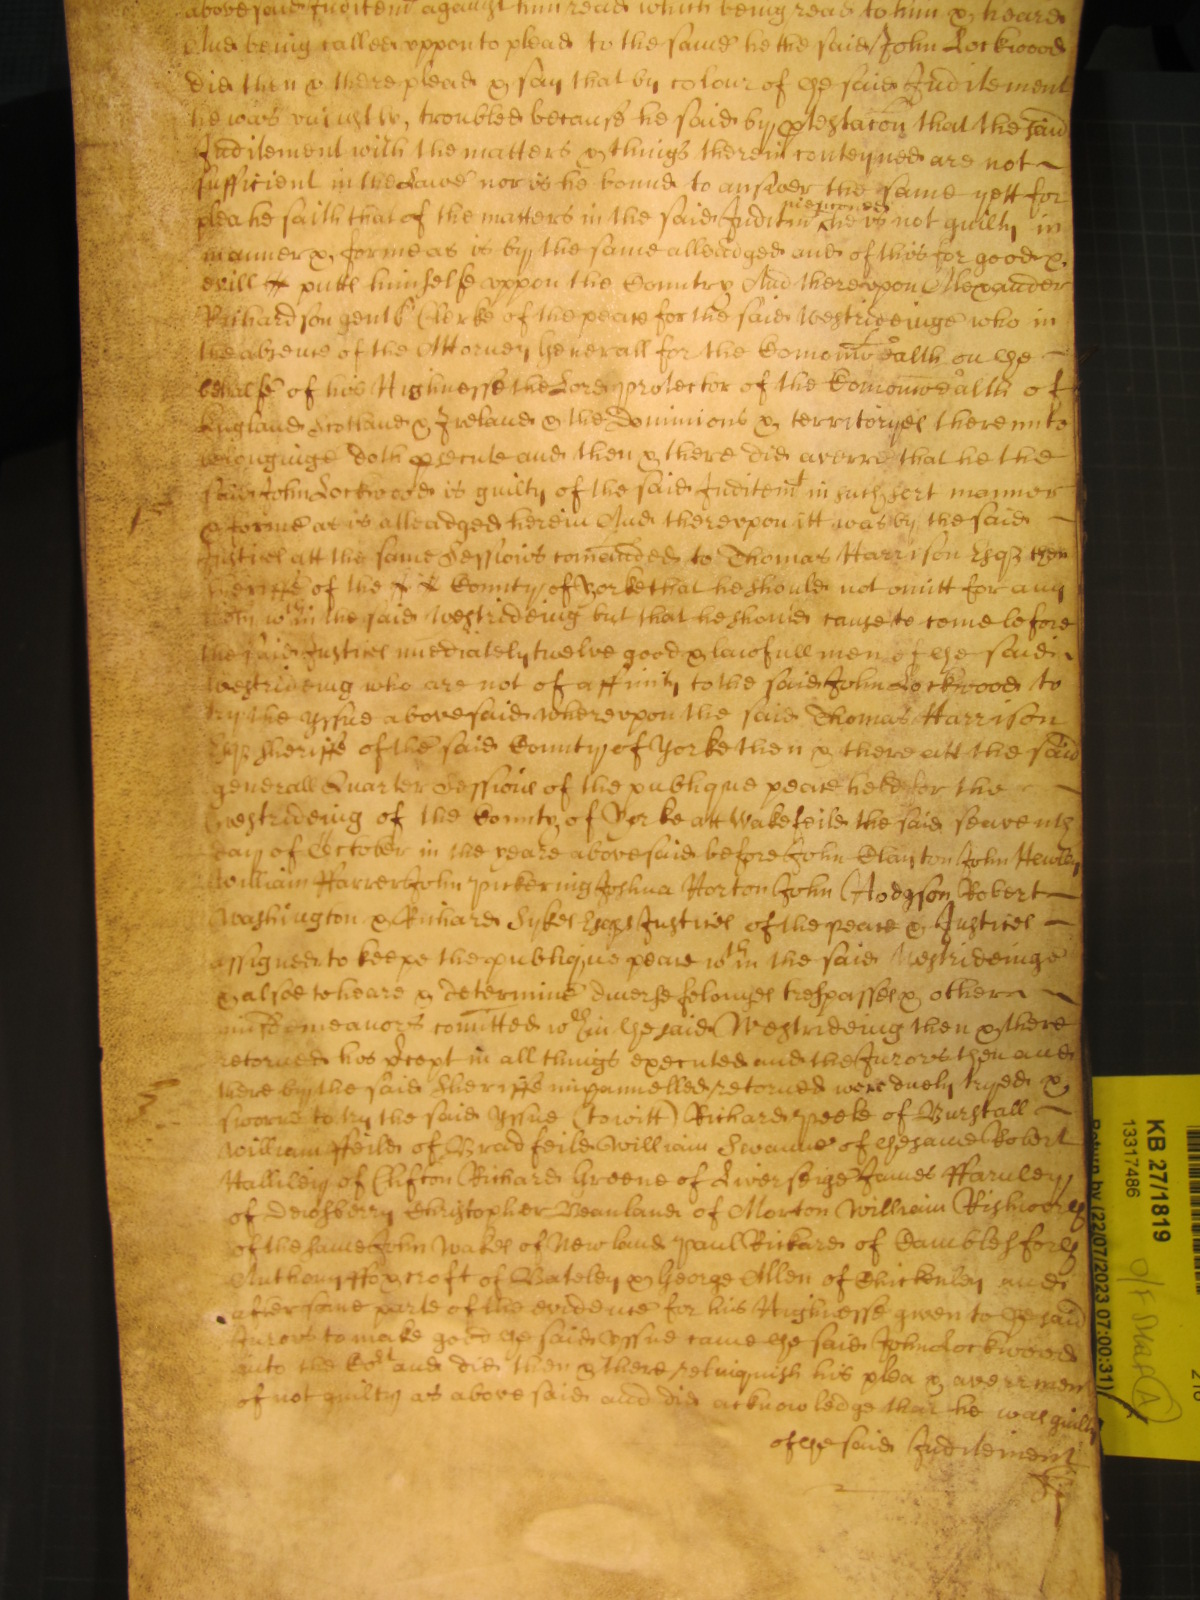 abovesaid Inditemt against him read which being read to him & heard
And being called uppon to plead to the same he the said John Lockwood
did then & there plead & say that by colour of the said Inditement
he was uniustly troubled because he said by ptestacon that the said
Inditement with the matters & things therein conteyned are not
sufficient in the Lawe nor is he bound to answer the same yett for
plea he saith that of the matters in the said Inditmt menconed he is not guilty in
manner & forme as is by the same alleadged and of this for good &
evill putts himselfe uppon the Country And thereupon Alexander
Richardson gent Clerke of the peace for the said Westrideinge who in
the absence of the Attorney Generall for the Comonwealth on the
behalfe of his Highnesse the Lord protector of the Comonwealth of
England Scotland & Ireland & the Dominions & territoryes thereunto
belonginge doth psecute and then & there did averre that he the
said John Lockwood is guilty of the said Inditemt in such sort manner
& forme as is alleadged herein And thereupon itt was by the said
Justices att the same Sessions comanded to Thomas Harrison Esqr then
Sheriffe of the County of Yorke that he should not omitt for any
libty wthin the said Westrideing but that he should cause to come before
the said Justices imediately twelve good & lawfull men of the said
Westrideing who are not of affinity to the said John Lockwood to
try the yssue abovesaid whereupon the said Thomas Harrison
Esqr Sheriffe of the said County of Yorke then & there att the said
generall Quarter Sessions of the publique peace held for the
Westrideing of the County of Yorke att Wakefeild the said seaventh
day of October in the yeare abovesaid before John Clayton John Hewley
William Farrer John Pickering Joshua Horton John Hodgson Robert
Washington & Richard Sykes Esqrs Justices of the peace & Justices
assigned to keepe the publique peace wthin the said Westrideinge
& alsoe to heare & determine diverse felonyes trespasses & other
misdemeanors comitted wthin the said Westrideing then & there
retorned his pcept in all things executed and the Jurors then and
there by the said Sheriffe impannelled retorned were duely tryed &
sworne to try the said yssue (towitt) Richard Peele of Burstall
William ffeild of Bradfeild William Swanne of the same Robert
Halliley of Clifton Richard Greene of Liverseige James ffarnley
of Dewsberry Christopher Beanland of Morton William Rishworth
of the same John Wakes of Newland Paul Rickard of Camblesforth
Anthony ffoxcroft of Bateley & George Allen of Chickenley and
after some parte of the evidence for his Highnesse given to the said
Jurors to make good the said yssue came the said John Lockwood
into the Cort and did then & there relinquish his plea & averrment
of not guilty as above said and did acknowledge that he was guilty
of the said Inditement
KB 27/1819
13317486
Return by (22/07/2023 07:00:31)